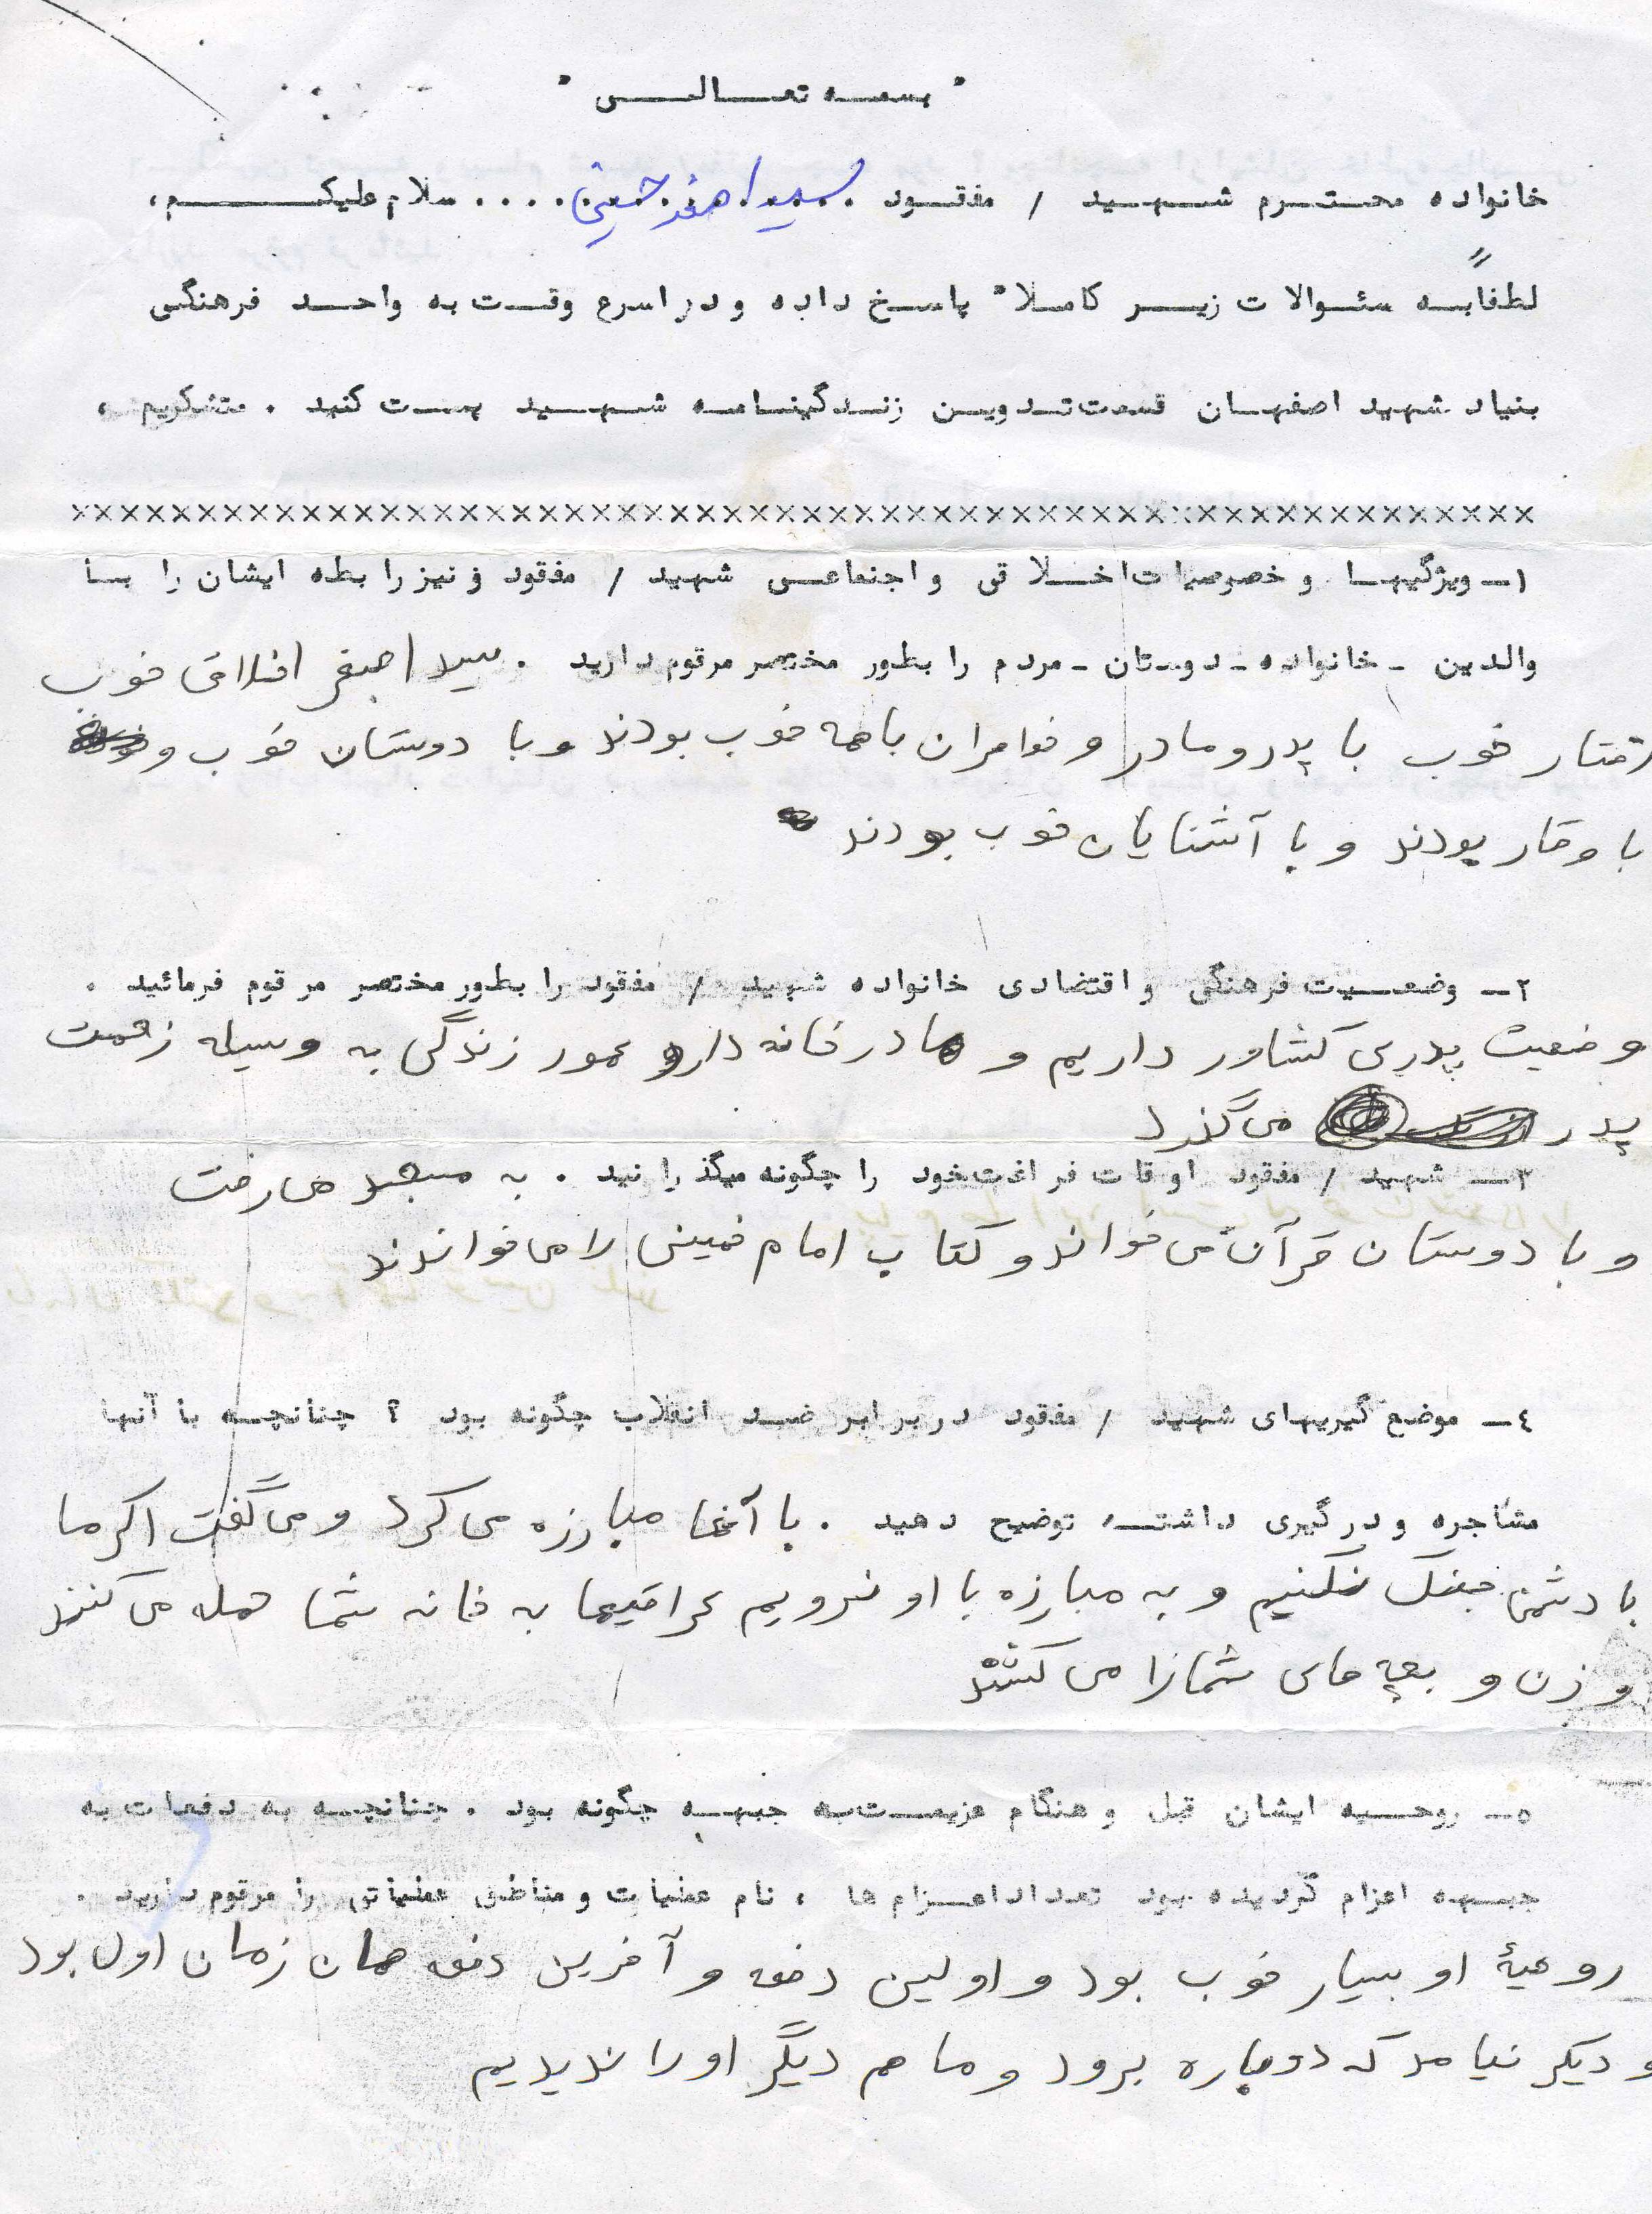 " بسمه تعالی "
خانواده محترم شهید / مفقود سید اصغر حسینی .... سلام علیکم ،
لطفاً به سئوالات زیر کاملا" پاسخ داده و در اسرع وقت به واحد فرهنگی
بنیاد شهید اصفهان قسمت تدوین زندگینامه شهید پست کنید . متشکریم ،
××××××××××××××××××××××××××××××××××××××××××××××××××××××××
۱ـ ویژگیها و خصوصیات اخلاقی و اجتماعی شهید / مفقود و نیز رابطه ایشان را با
والدین ـ خانواده ـ دوستان ـ مردم را بطور مختصر مرقوم دارید . سید اصغر اخلاق خوب
رفتار خوب با پدر و مادر و خواهران با همه خوب بودند و با دوستان خوب و
با وقار بودند و با آشنایان خوب بودند
۲ـ وضعیت فرهنگی و اقتضادی خانواده شهید / مفقود را بطور مختصر مرقوم فرمائید .
وضعیت پدری کشاور داریم و مادر خانه دار و امور زندگی به وسیله زحمت
پدر می گذرد
۳ـ شهید / مفقود اوقات فراغت خود را چگونه میگذرانید . به مسجد می رفت
و با دوستان قرآن می خواند و کتاب امام خمینی را می خواندند
٤ـ موضع گیریهای شهید / مفقود در برابر ضد انقلاب چگونه بود ؟ چنانچه با آنها
مشاجره و درگیری داشته توضیح دهید . با آنها مبارزه می کرد و می گفت اگر ما
با دشمن جنگ نکنیم و به مبارزه با او نرویم عراقیها به خانه شما حمله می کنند
و زن و بچه های شما را می کشند
٥ـ روحیه ایشان قبل و هنگام عزیمت به جبهه چگونه بود . چنانچه به دفعات به
جبهه اعزام گردیده بود تعداد اعزام ها ، نام عملیات و مناطق عملیاتی را مرقوم دارید .
روحیهٔ او بسیار خوب بود و اولین دفعه و آخرین دفعه همان زمان اول بود
و دیگر نیامد که دوباره برود و ما هم دیگر او را ندیدیم